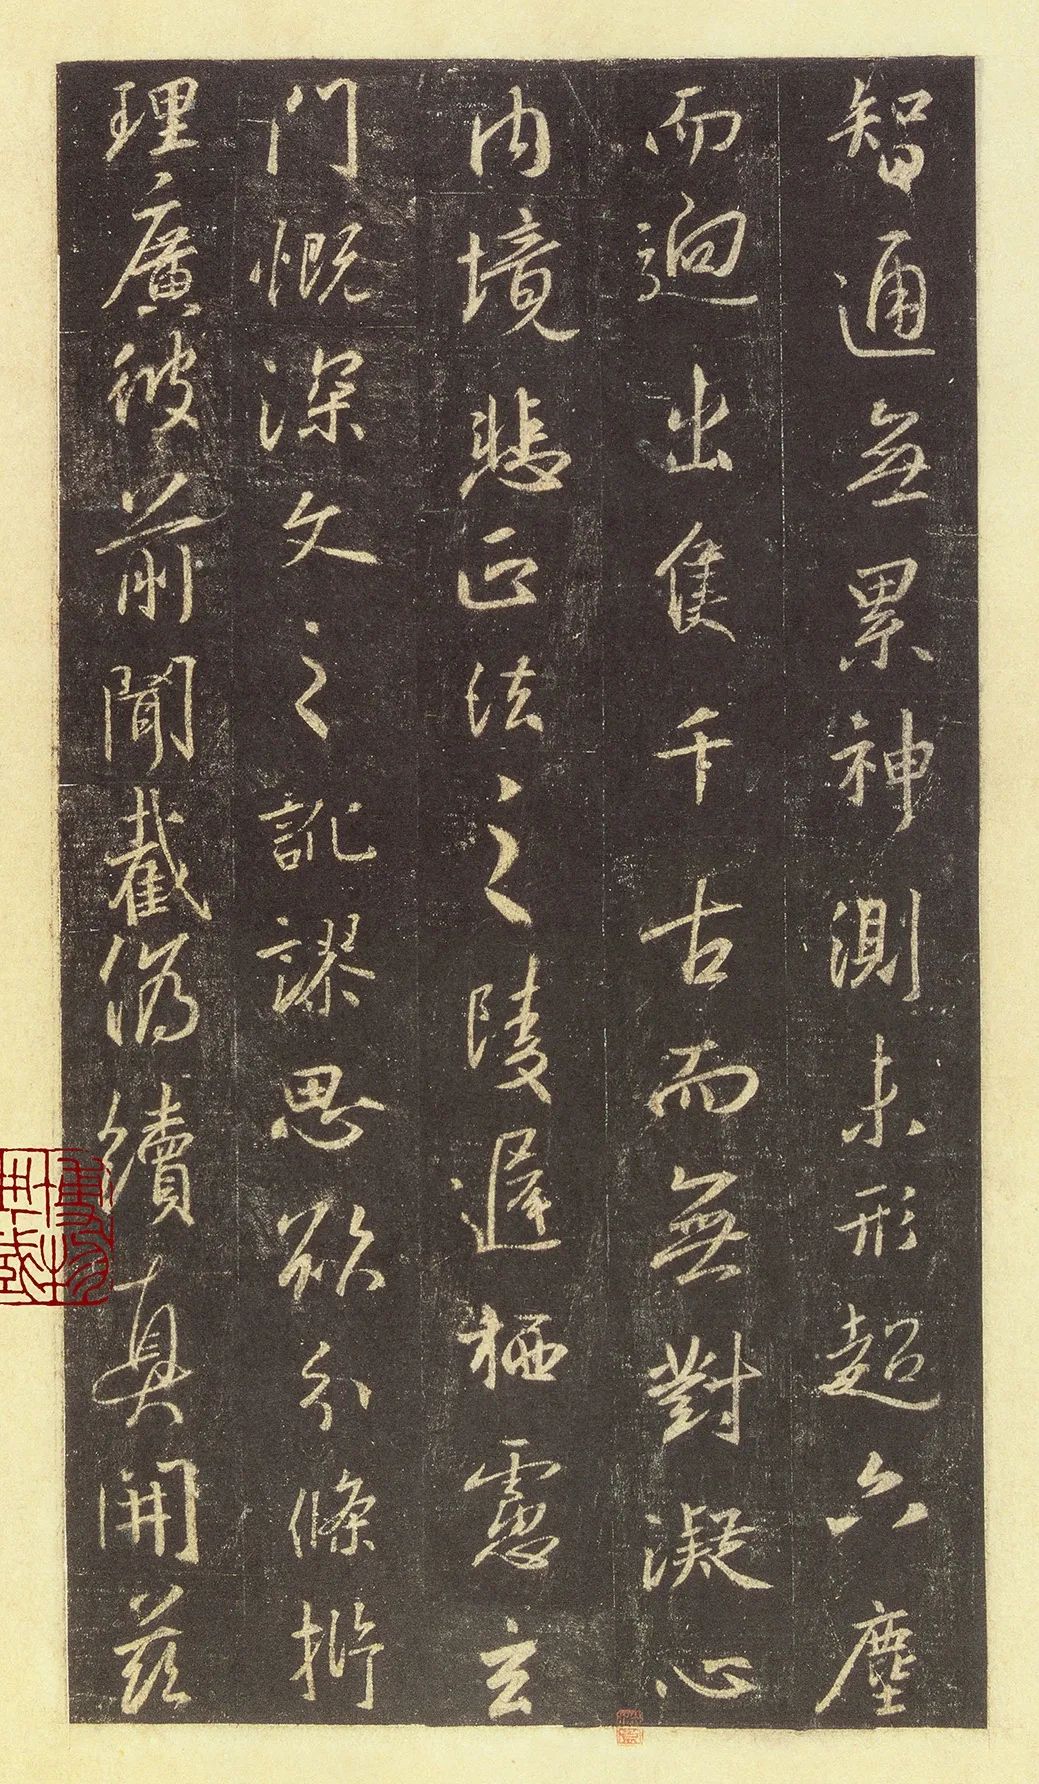 智通無累神測未形超六塵
而迥出隻千古而無對凝心
内境悲正法之陵遲栖慮玄
門慨深文之訛謬思欲分條析
理廣彼前聞截偽續真開茲